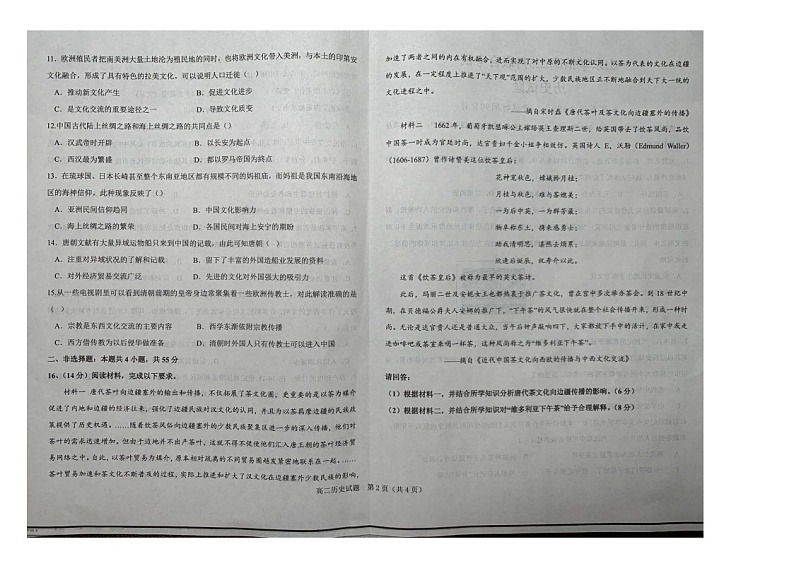 11．欧洲殖民者把南美洲大量土地沦为殖民地的同时，也将欧洲文化带入美洲，与本土的印第安
文化融合，形成了具有特色的拉美文化。可以说明人口迁徙（ ）
A．推动新文化产生 B．促进文化进步
C．是文化交流的重要途径之一 D．导致文化质变
12.中国古代陆上丝绸之路和海上丝绸之路的共同点是（ ）
A．汉武帝时开辟 B．以长安为起点
C．西汉最为繁盛 D．都以罗马帝国为终点
13．在琉球国、日本长崎甚至整个东南亚地区都有规模不同的妈祖庙，而妈祖是我国东南沿海地
区的海神信仰。此种现象反映了（ ）
A．亚洲民间信仰趋同 B．中国文化影响力
C．海上丝绸之路的繁荣 D．各国民间对海上安宁的期盼
14．唐朝文献有大量异域运物船只来到中国的记载，由此可知唐朝（ ）
A．注重对异域状况的了解和记载 B．留下了丰富的外国造船业发展的资料
C．对外经济贸易交流广泛 D．先进的文化对外国强大的吸引力
15.从一些电视剧里可以看到清朝前期的皇帝身边常聚集着一些欧洲传教士，对此解读准确的是
（ ）
A．宗教是东西文化交流的主要内容 B．西学东渐依附宗教传播
C．西方借传教为以后侵华做准备 D．清朝时外国人只有传教士可以进入中国
二、非选择题：本题共 4 小题，共 55 分
16．（14 分）阅读材料，完成以下要求。
材料一 唐代茶叶向边疆塞外的输出和传播，不仅拓展了茶文化圈，更重要的是以茶为媒介
促进了内地和边疆的经济往来，强化了边疆民族对汉文化的认同，并且为以茶易唐边疆的民族政
策提供了历史机遇。……随着饮茶风俗向边疆塞外的少数民族聚集区进一步的深入传播，他们对
茶叶的需求迅速增加。但由于边地并不出产茶叶，这就不得不促使他们汇入唐王朝的茶叶经济贸
易网络之中。自此，以茶叶贸易为媒介，原本相对疏离的不同贸易圈越发紧密地联系在一起。……
茶叶贸易加速和茶文化不断普及的过程，实际上推进和扩大了汉文化在边疆塞外少数民族的影响，
高二历史试题 第 2 页（共 4 页）
加速了两者之间的内在有机融合，进而实现了对中原的不断文化认同。以茶为代表的文化在边疆
的发展，在一定程度上推进了“天下观”范围的扩大，少数民族地区正不断地融合到天下大一统的
文化进程之中。
——摘自宋时磊《唐代茶叶及茶文化向边疆塞外的传播》
材料二 1662 年，葡萄牙凯瑟琳公主嫁给英王查理斯二世，给英国带去了饮茶风尚，品饮
中国茶一时成为宫廷时尚，达官贵妇千金小姐争相效仿。英国诗人 E. 沃勒（Edmund Waller）
（1606-1687）曾作诗赞美这位饮茶皇后：
花神宠秋色，嫦娥矜月桂；
月桂与秋色，难与茶媲美；
一为后中英，一为群芳最；
物阜称东土，携来感勇士；
助我清明思，湛然去烦累；
欣逢后诞辰，祝寿介以此。
这首《饮茶皇后》被称为最早的英文茶诗。
此后，玛丽二世及安妮女王也都热衷于推广茶文化，曾在宫中多次举办茶会。到 18 世纪中
期，在贡德福公爵夫人安娜的推广下，“下午茶”的风气很快就在整个社会传播开来，形成一种时
尚。无论是达官贵人还是普通大众，当午后钟声敲响四下，大家都放下手中的活计，在家中或是
走进咖啡吧或茶室来喝一杯茶，这种风尚称之为“维多利亚下午茶”。
——摘自《近代中国茶文化向西欧的传播与中西文化交流》
请回答：
（1）根据材料一，并结合所学知识分析唐代茶文化向边疆传播的影响。（6 分）
（2）根据材料二，并结合所学知识对“维多利亚下午茶”给予合理解释。（8 分）